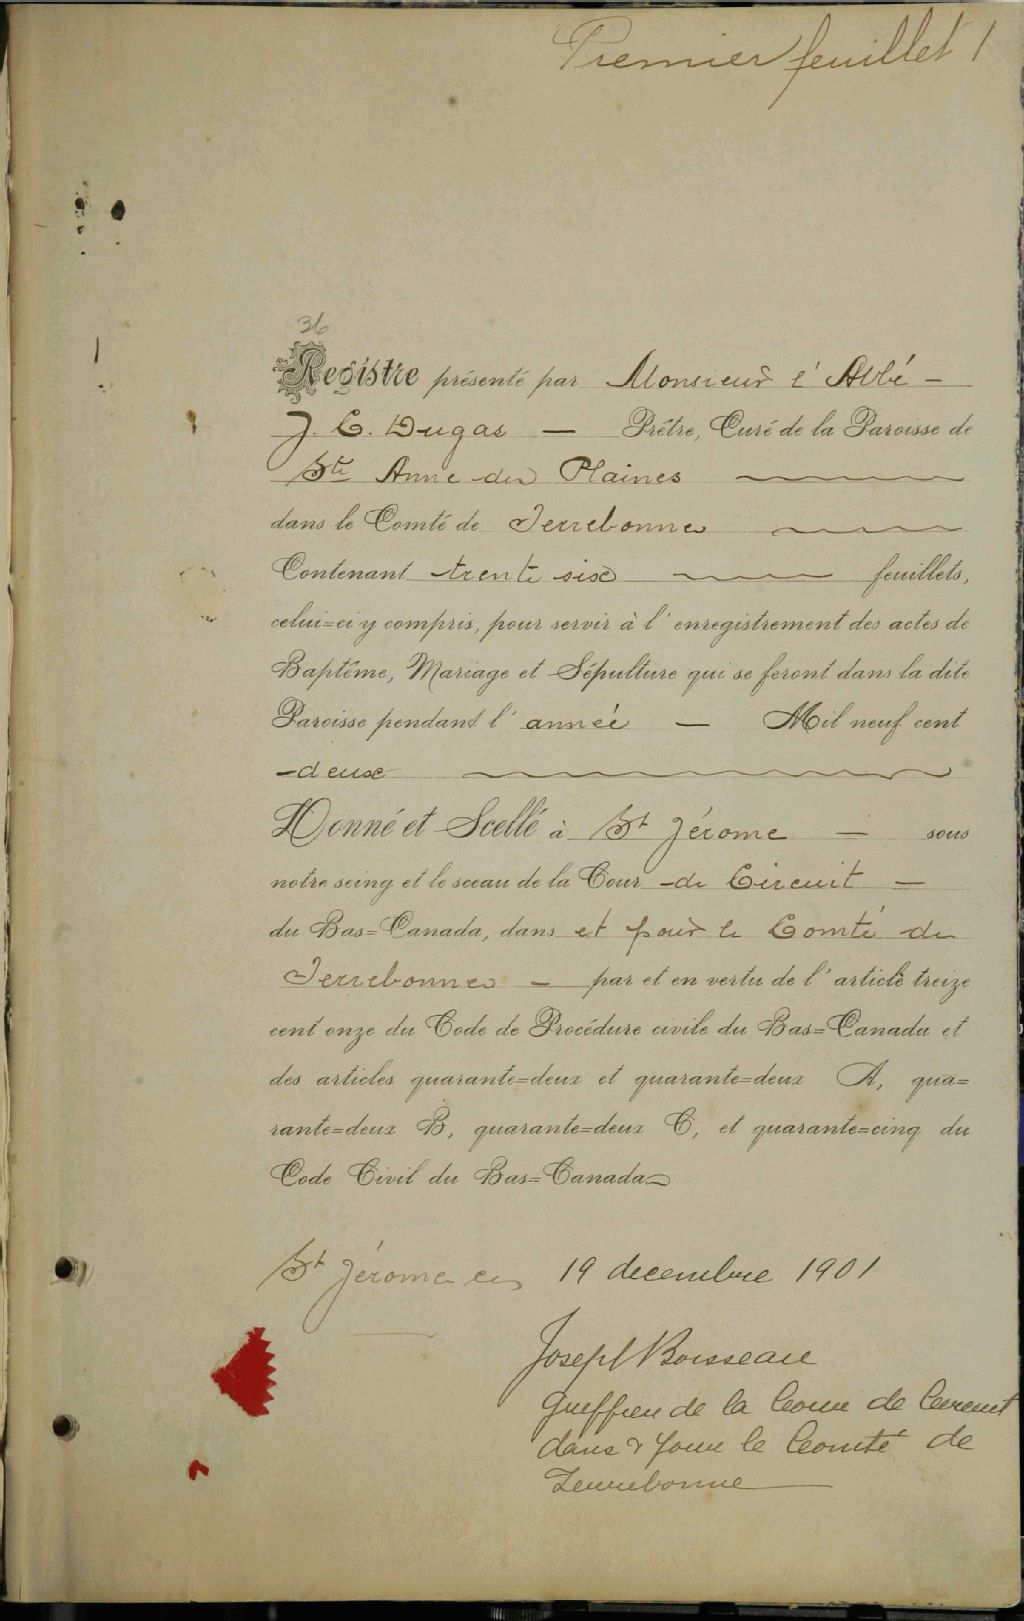 Premier feuillet 1
36
Registre présenté par Monsieur l'Abbé -
J. C. Dugas — Prêtre, Curé de la Paroisse de
Ste Anne des Plaines
dans le Comté de Terrebonne
Contenant trente six feuillets,
celui=ci y compris, pour servir à l'enregistrement des actes de
Baptême, Mariage et Sépulture qui se feront dans la dite
Paroisse pendant l'année — Mil neuf cent
-deux
Donné et Scellé à St Jérome — sous
notre seing et le sceau de la Cour -de Circuit —
du Bas=Canada, dans et pour le Comté de
Terrebonne — par et en vertu de l'article treize
cent onze du Code de Procédure civile du Bas=Canada et
des articles quarante=deux et quarante=deux A, qua=
rante=deux B, quarante=deux C, et quarante=cinq du
Code Civil du Bas=Canada
St Jérome ce 19 decembre 1901
Joseph Boisseau
Greffier de la Cour de Circuit
dans & pour le Comté de
Terrebonne